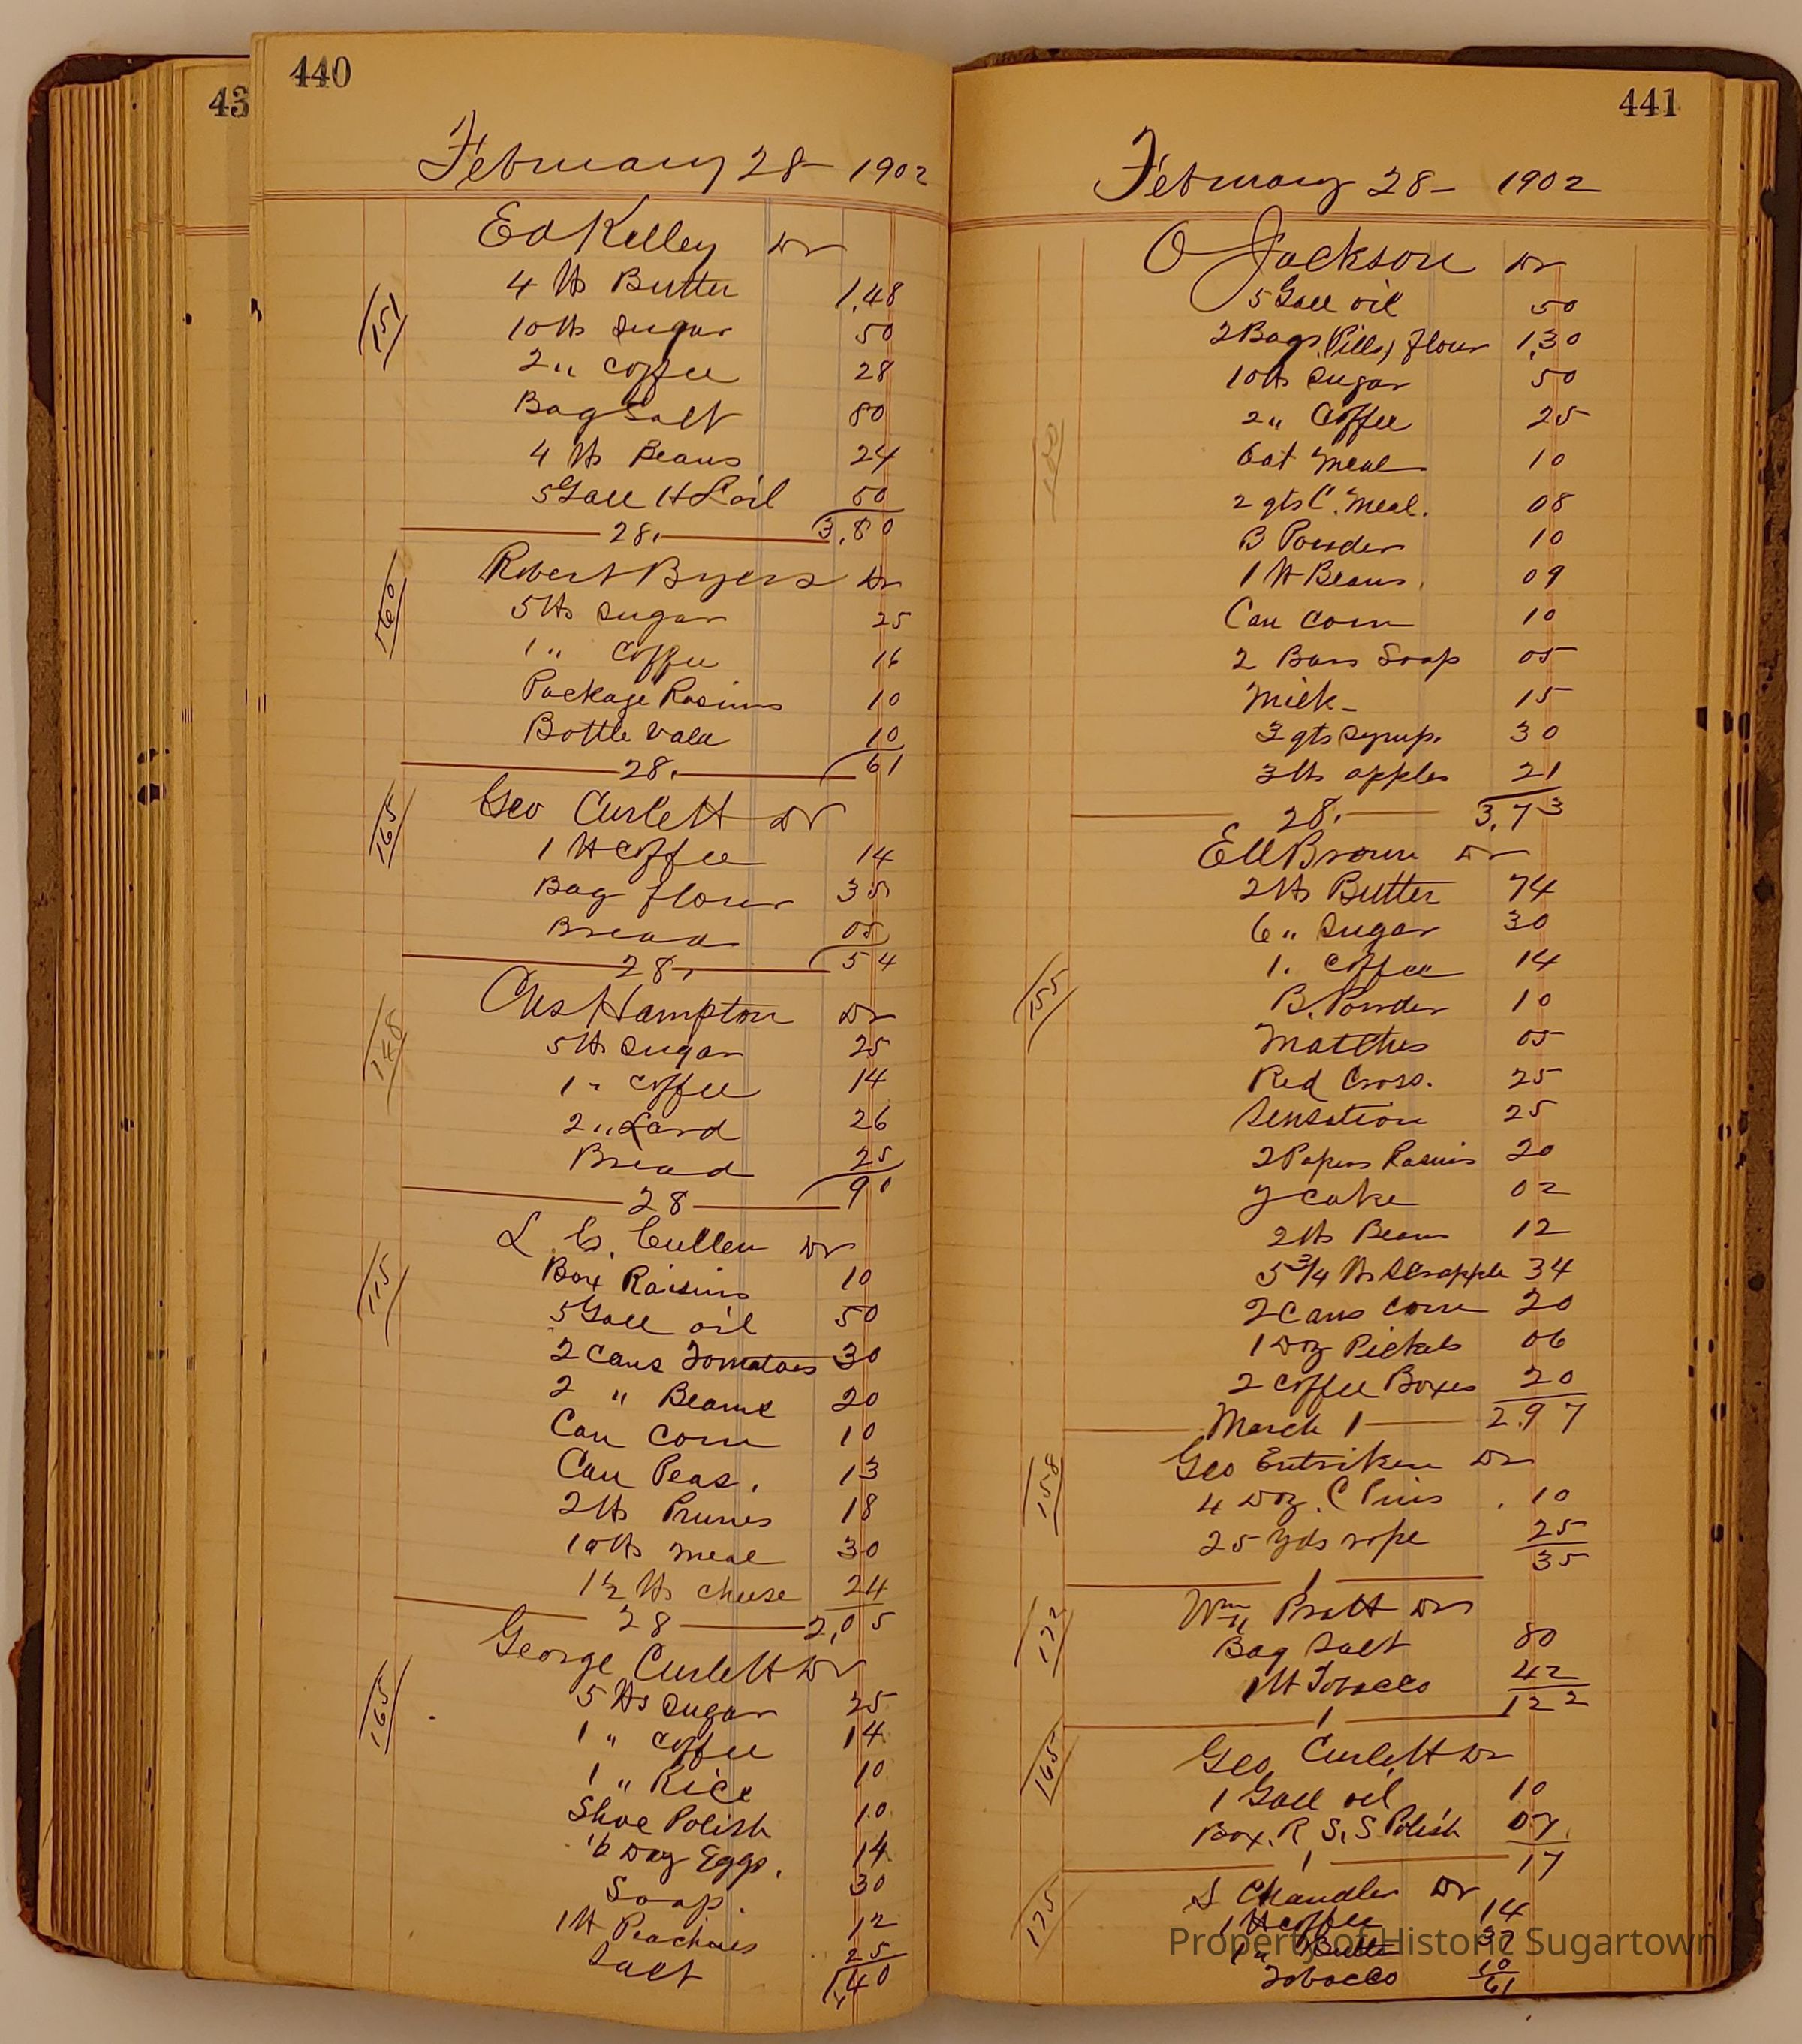 43
440
February 28 - 1902
Ed Kelley Dr
151
4 lbs Butter 1.48
10 lbs Sugar 50
2 " Coffee 28
Bag Salt 80
4 lbs Beans 24
5 Gall H L oil 50
28. 3.80
Robert Byers Dr
160
5 lbs Sugar 25
1 " Coffee 16
Package Rasins 10
Bottle 10
28. 61
Geo Curlett Dr
165
1 lb Coffee 14
Bag flour 35
Bread 05
28. 54
Chs Hampton Dr
148
5 lbs Sugar 25
1 " Coffee 14
2 " Lard 26
Bread 25
28 90
L. G. Cullen Dr
115
Box Raisins 10
5 Gall oil 50
2 Cans Tomatoes 30
2 " Beans 20
Can Corn 10
Can Peas. 13
2 lbs Prunes 18
10 lbs meal 30
1½ lbs cheese 24
28 2,05
George Curlett Dr
165
5 lbs Sugar 25
1 " Coffee 14
1 " Rice 10
Shoe Polish 10
½ Doz Eggs. 14
Soap. 30
1 lb Peaches 12
Salt 25
1,40
441
February 28 - 1902
O Jackson Dr
5 Gall oil 50
2 Bags (Pills) flour 1,30
10 lbs Sugar 50
2 " Coffee 25
Oat meal 10
2 qts C. Meal. 08
B Powder 10
1 lb Beans. 09
Can Corn 10
2 Bars Soap 05
Milk - 15
3 qts Syrup. 30
3 lbs apples 21
28. 3.73
Ell Brown Dr
2 lbs Butter 74
6 " Sugar 30
1. Coffee 14
155
B. Powder 10
Matches 05
Red Cross. 25
Sensation 25
2 Papers Rasins 20
Y cake 02
2 lbs Beans 12
5 3/4 lbs Scrapple 34
2 Cans Corn 20
1 Doz Pickels 06
2 Coffee Boxes 20
March 1 2.97
Geo Entriken Dr
158
4 Doz. C Pins . 10
25 yds rope 25
35
1
Wm H Pratt Dr
122
Bag Salt 80
1 lb Tobacco 42
1 122
Geo Curlett Dr
165
1 Gall oil 10
Box. R. S. S Polish 07
1 17
S Chandler Dr
125
1 lb Coffee 14
1 " Butter 37
Tobacco 10
61
Property of Historic Sugartown